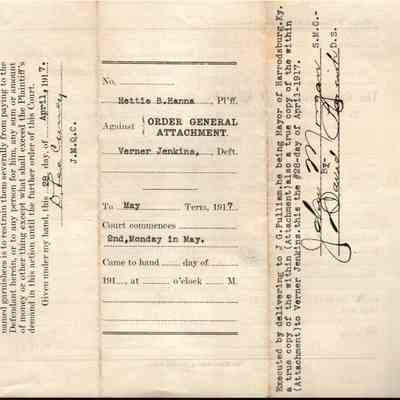 named garnishee is to restrain them severally from paying to the
Defendant herein, or to any person for him, any sum or amount
of money or other thing except what shall exceed the Plaintiff's
demand in this action until the further order of this Court.
Given under my hand, this 28 day of April, 1917.
J.M.Q.C.
No.
Hettie B.Hanna, Pl'ff.
Against
ORDER GENERAL
ATTACHMENT.
Verner Jenkins, Deft.
To May Term, 1917
Court commences
2nd,Monday in May.
Came to hand day of
191 , at o'clock M.
Executed by delivering to J G.Pulliam.he being Mayor of Harrodsburg.Ky.
a true copy of the within (Attachment)also a true copy of the within
(Attachment)to Verner Jenkins.this the #28-day of April-1917.
John Morgan S.M.C.-
By-
David D.S.